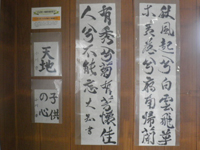 秋風起兮白雲飛草
木黄落兮雁南帰蘭
有秀兮菊有芳懐佳
人兮不能忘
天地
子供
の心